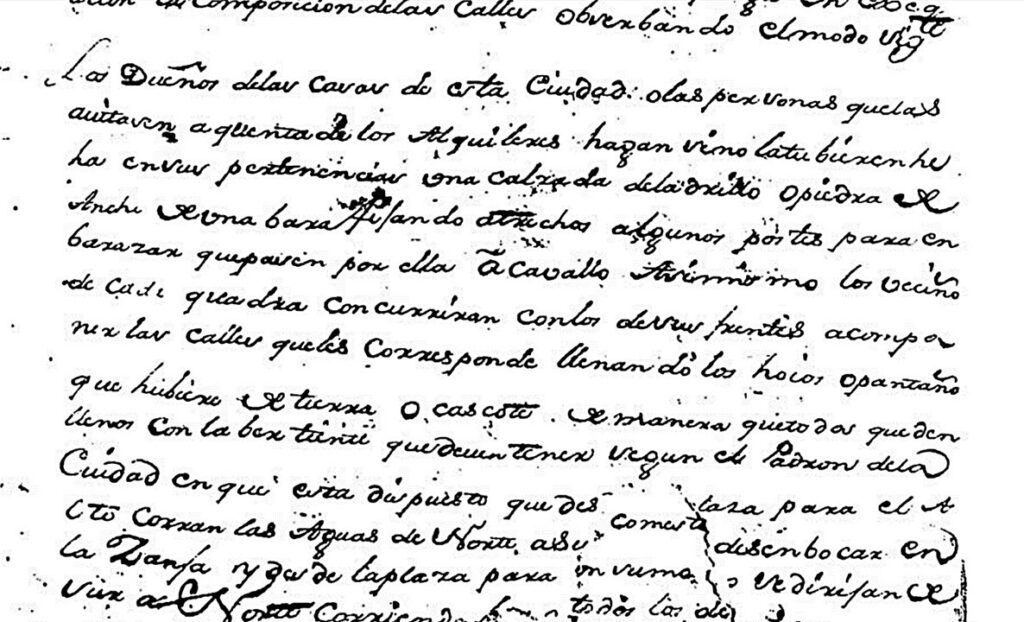 composicion delas Calles obserbando elmodo sigte
Los Dueños delas Casas de esta Ciudad: olas personas quelas
auitasen aquenta de los Alquileres hagan sino latubieren he
ha ensus pertenencias una calzada deladrillo opiedra de
Anche de una bara fijando atrechos algunos postes para en
barazar quepasen por ella à Cavallo Asimismo los vecino
de Cada quadra concurriran conlos desus frentes acompo
ner las Calles queles Corresponde llenando los hoios opantano
que hubiere de tierra o cascote. de manera quetodos queden
llenos con la bertiente quedeuen tener segun el Padron dela
Ciudad en que esta dispuesto que des laza para el A
lto Corran las Aguas de Norte asu comer desenbocar en
la Zanja y desde laplaza para en suma o sedirijan de
sur a Norte Corriendo todos los de